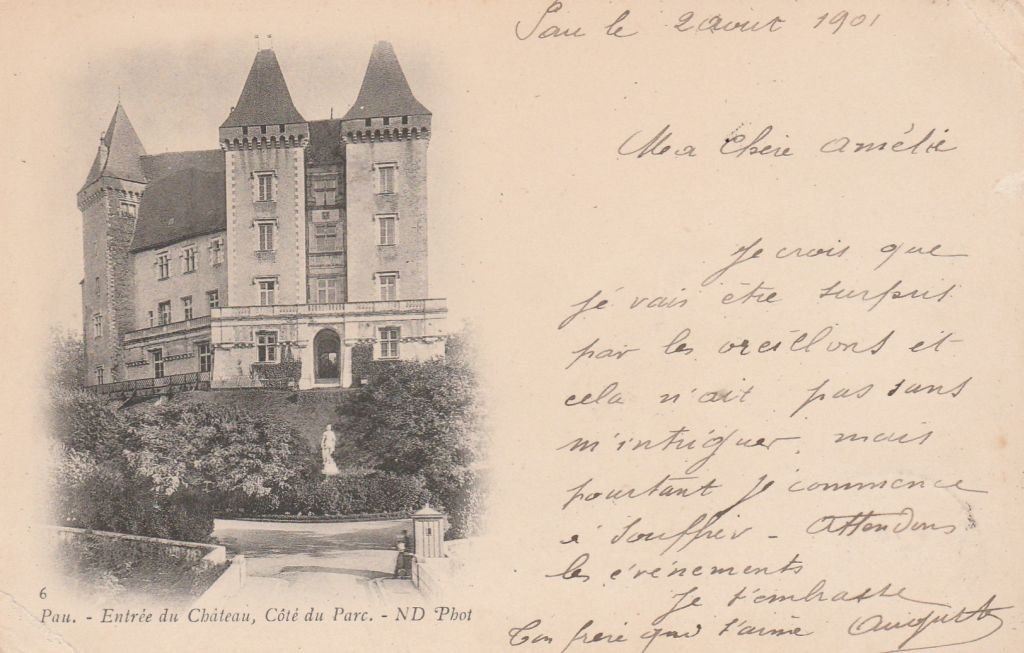 Pau le 2 aout 1901
Ma Chère Amélie
Je crois que
jé vais être surpris
par les oreillons et
cela n'ait pas sans
m'intriguer, mais
pourtant je commence
à souffrir - Attendons
les événements
Je t'embrasse
Ton frère qui t'aime Auguste
6
Pau. - Entrée du Château, Côté du Parc. - ND Phot